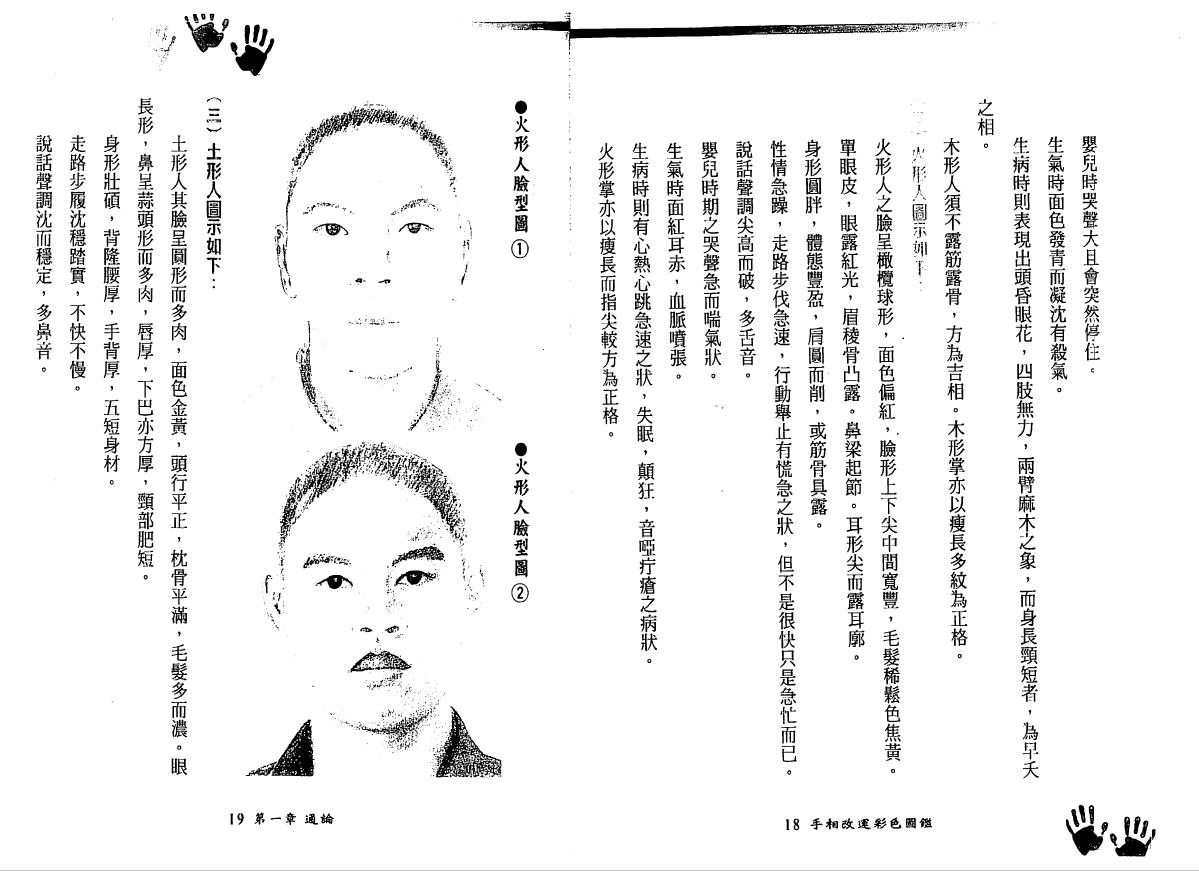 嬰兒時哭聲大且會突然停住。
生氣時面色發青而凝沈有殺氣。
生病時則表現出頭昏眼花，四肢無力，兩臂麻木之象，而身長頸短者，為早夭
之相。
木形人須不露筋露骨，方為吉相。木形掌亦以瘦長多紋為正格。
火形人圖示如下：
火形人之臉呈橄欖球形，面色偏紅，臉形上下尖中間寬豐，毛髮稀鬆色焦黃。
單眼皮，眼露紅光，眉稜骨凸露。鼻梁起節。耳形尖而露耳廓。
身形圓胖，體態豐盈，肩圓而削，或筋骨具露。
性情急躁，走路步伐急速，行動舉止有慌急之狀，但不是很快只是急忙而已。
說話聲調尖高而破，多舌音。
嬰兒時期之哭聲急而喘氣狀。
生氣時面紅耳赤，血脈噴張。
生病時則有心熱心跳急速之狀，失眠，顛狂，音啞疔瘡之病狀。
火形掌亦以瘦長而指尖較方為正格。
18 手相改運彩色圖鑑
●火形人臉型圖①
●火形人臉型圖②
（三）土形人圖示如下：
土形人其臉呈圓形而多肉，面色金黃，頭行平正，枕骨平滿，毛髮多而濃。眼
長形，鼻呈蒜頭形而多肉，唇厚，下巴亦方厚，頸部肥短。
身形壯碩，背隆腰厚，手背厚，五短身材。
走路步履沈穩踏實，不快不慢。
說話聲調沈而穩定，多鼻音。
19 第一章 通論